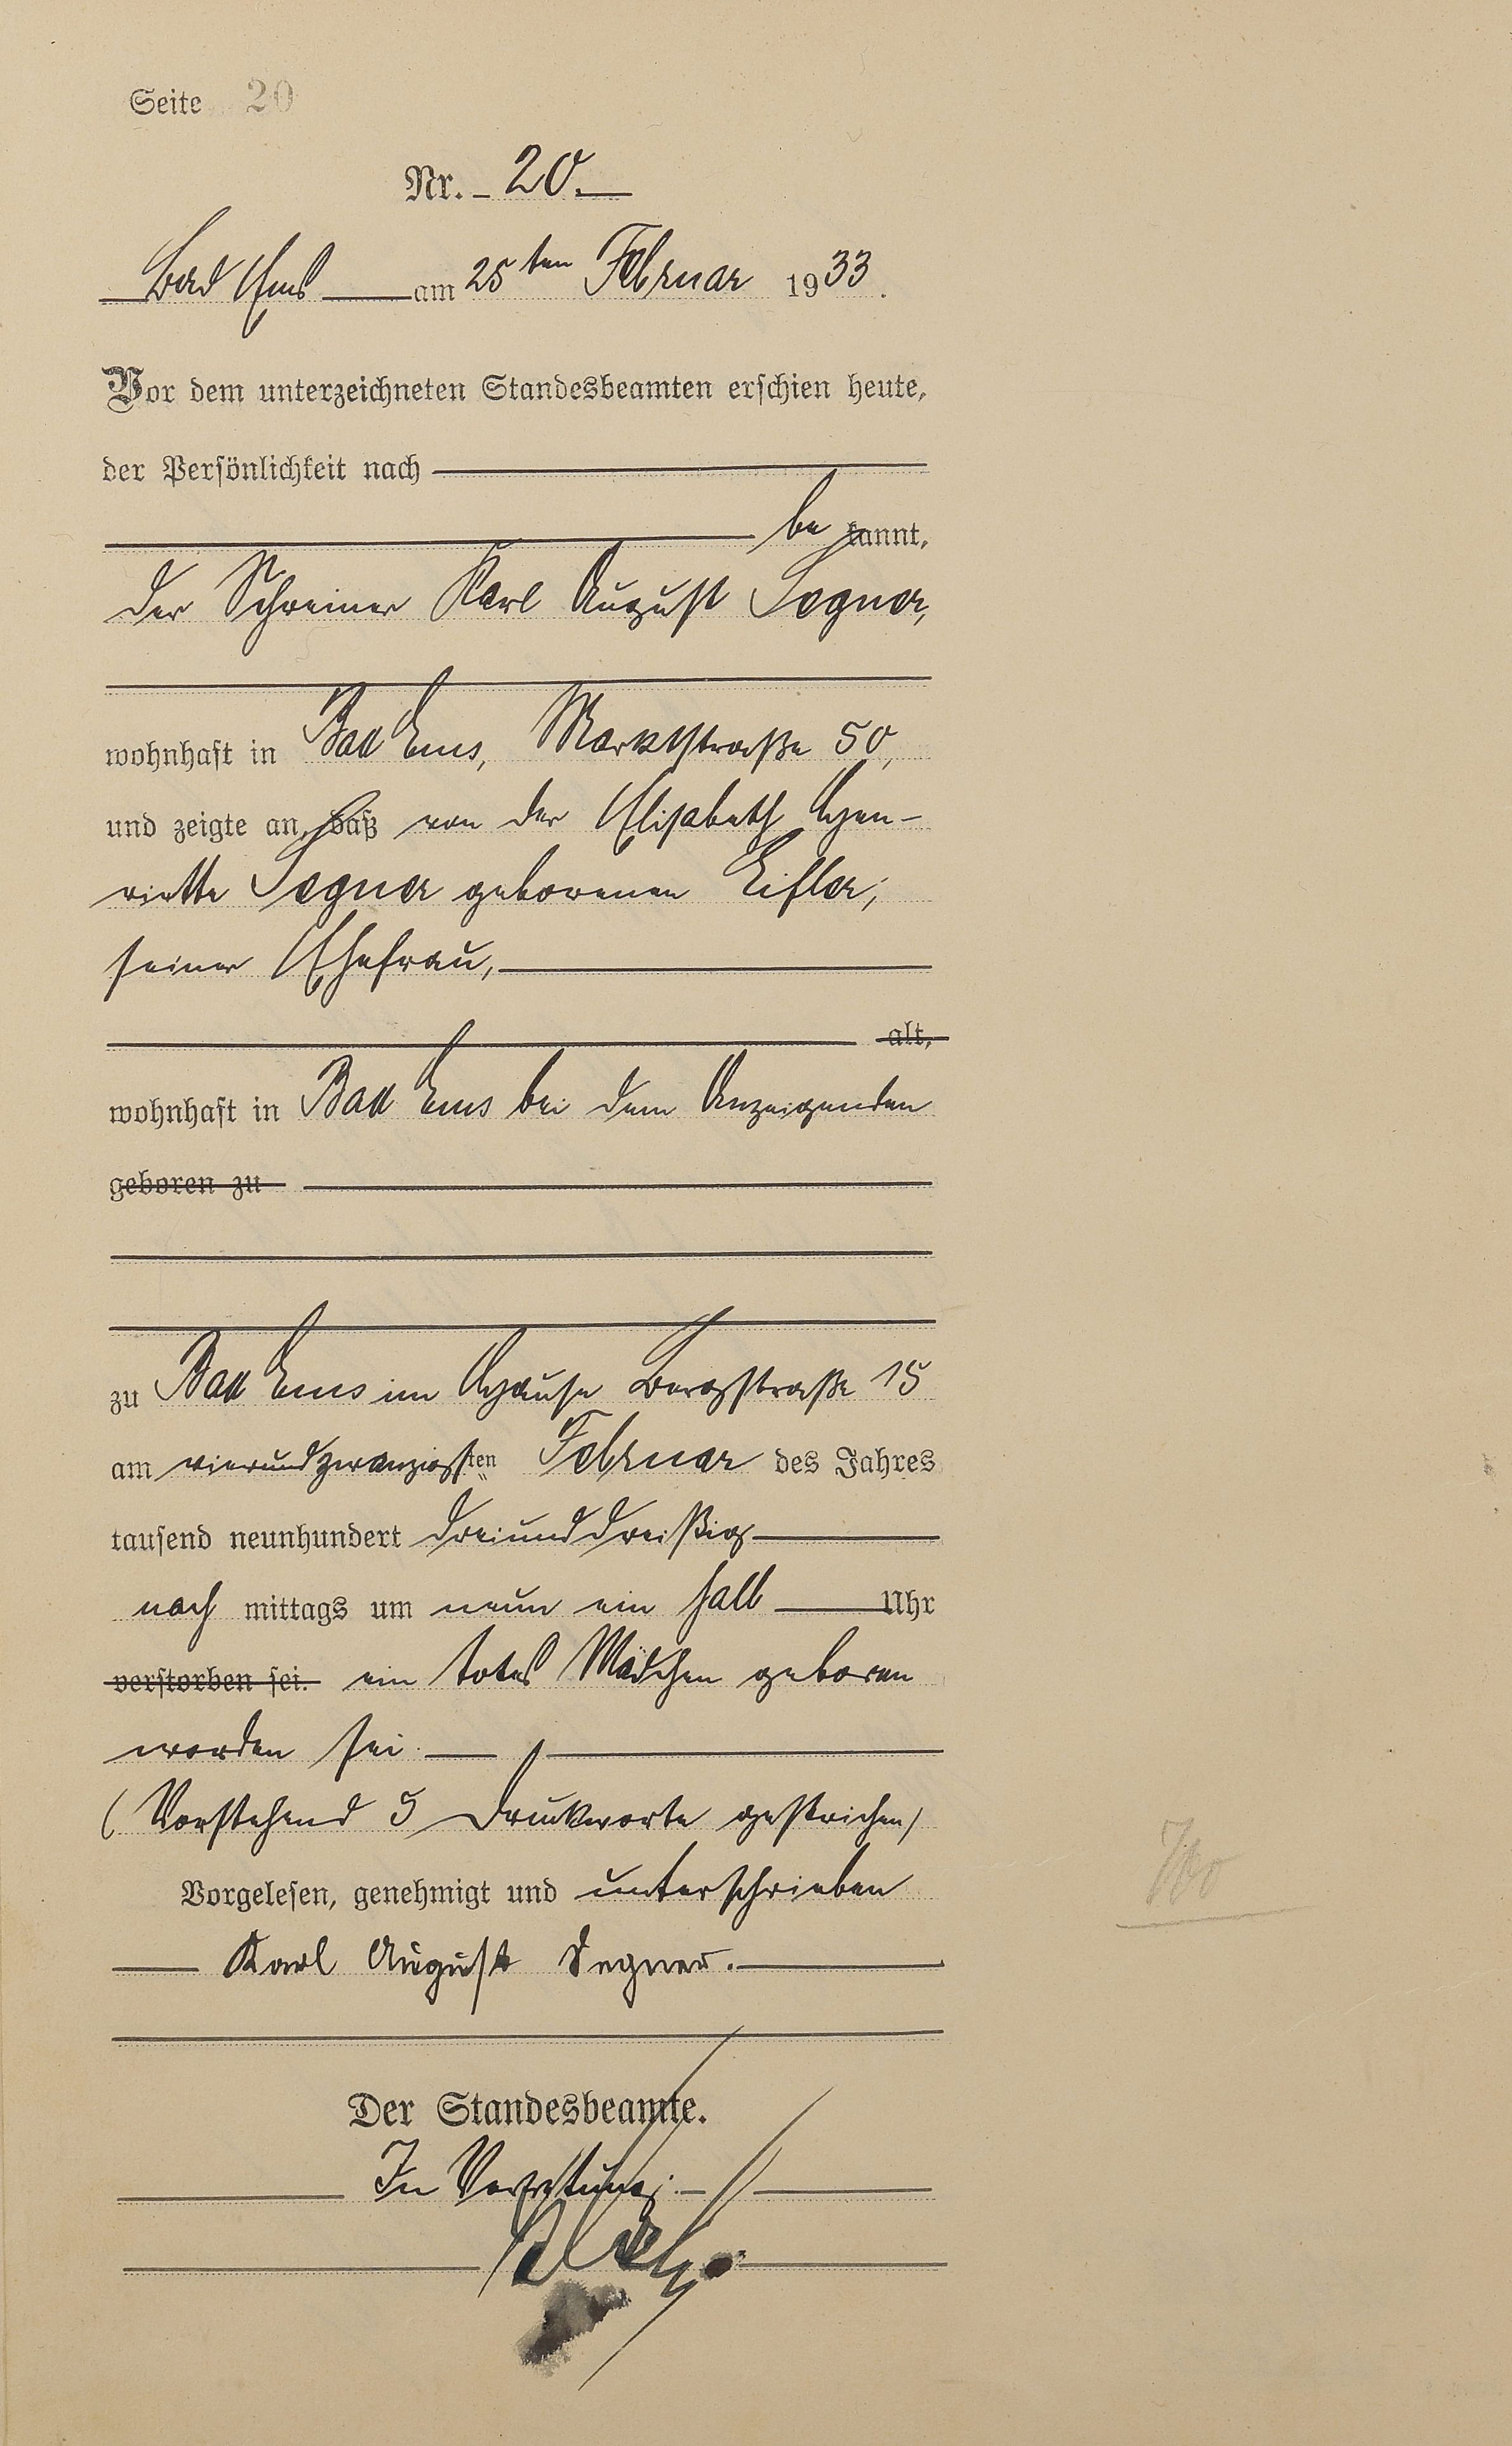 Seite 20
Nr. 20.
Bad Ems am 25ten Februar 1933.
Vor dem unterzeichneten Standesbeamten erschien heute,
der Persönlichkeit nach
be kannt,
der Schreiner Karl August Segner,
wohnhaft in Bad Ems, Marktstraße 50,
und zeigte an, daß von der Elisabeth Hen-
riette Segner geborenen Eifler,
seiner Ehefrau,
alt,
wohnhaft in Bad Ems bei dem Anzeigenden
geboren zu
zu Bad Ems im Hause Bergstraße 15
am vierundzwanzigsten Februar des Jahres
tausend neunhundert dreiunddreißig
nach mittags um neun ein halb Uhr
verstorben sei. ein totes Mädchen geboren
worden sei.
(Vorstehend 5 Druckworte gestrichen)
Vorgelesen, genehmigt und unterschrieben
Karl August Segner.
Der Standesbeamte.
In Vertretung: